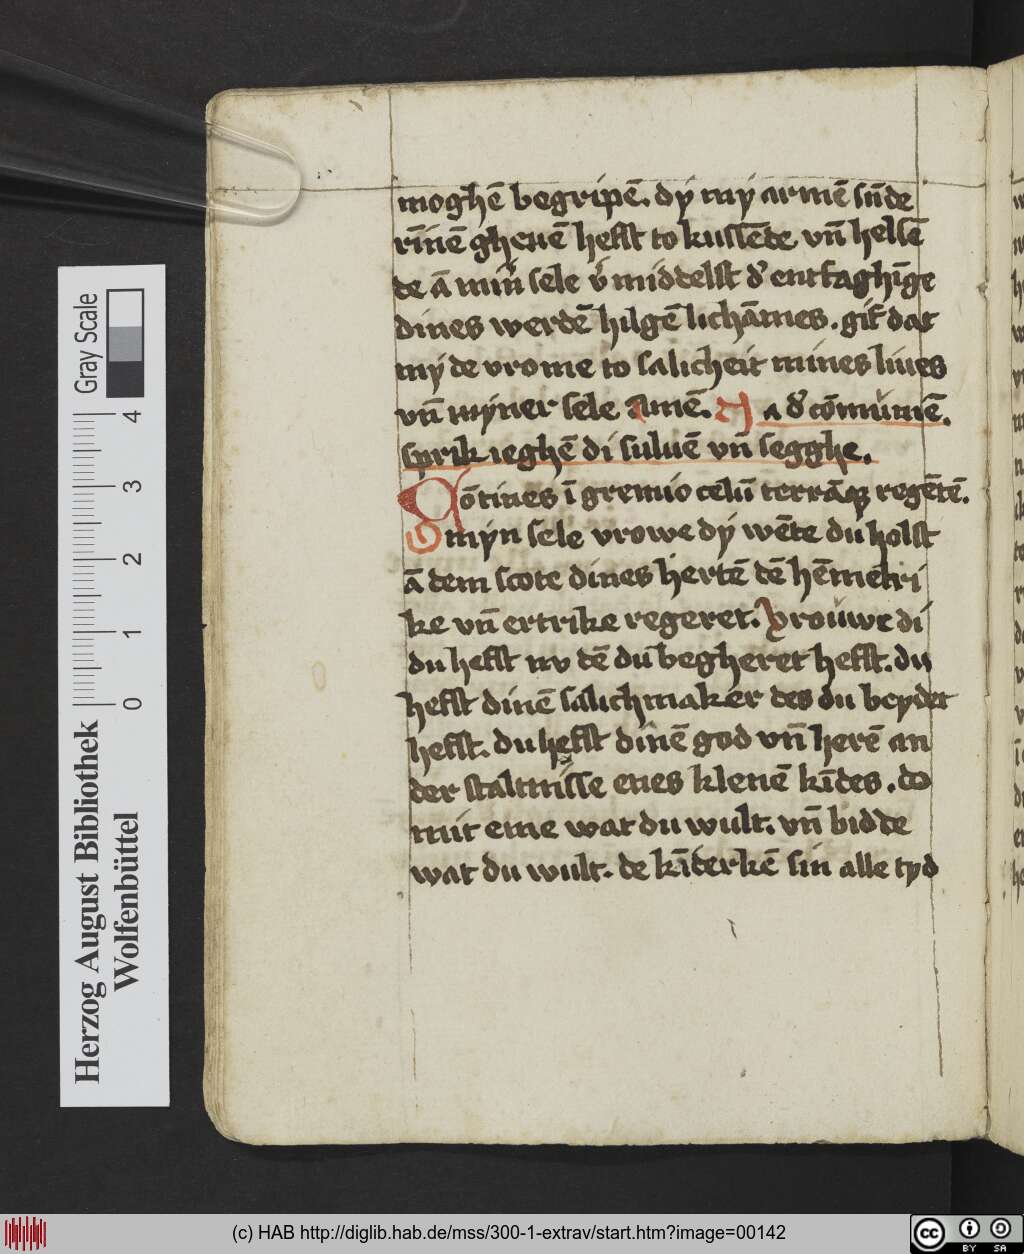 moghē begripē. dÿ mÿ armē sn̄de
rīnē gheuē hefst to kussēde vn̄ helsē
de ā mīn̄ sele v̓middelst d̓ entfāghīge
dines werdē hilgē lichāmes. gif dat
mÿ de vrome to salicheit mines liues
vn̄ mÿner sele Amē. A d̓ cōmūniē.
sprik ieghē di suluē vn̄ segghe.
Cōtines ī gremio celū terrāqꝫ regētē.
O mÿn sele vrowe dÿ wēte du holst
ā dem scote dines hertē dē hēmelri
ke vn̄ ertrike regeret. Vrouwe di
du hefst nv dē du begheret hefst. du
hefst dinē salichmaker des du beydet
hefst. du hefst dinē god vn̄ herē an
der staltnisse enes klenē kīdes. do
mit eme wat du wult. vn̄ bidde
wat du wult. de kīderkē sin alle tyd
Gray Scale
4
3
2
1
0
Herzog August Bibliothek
Wolfenbüttel
(c) HAB http://diglib.hab.de/mss/300-1-extrav/start.htm?image=00142
cc
BY SA